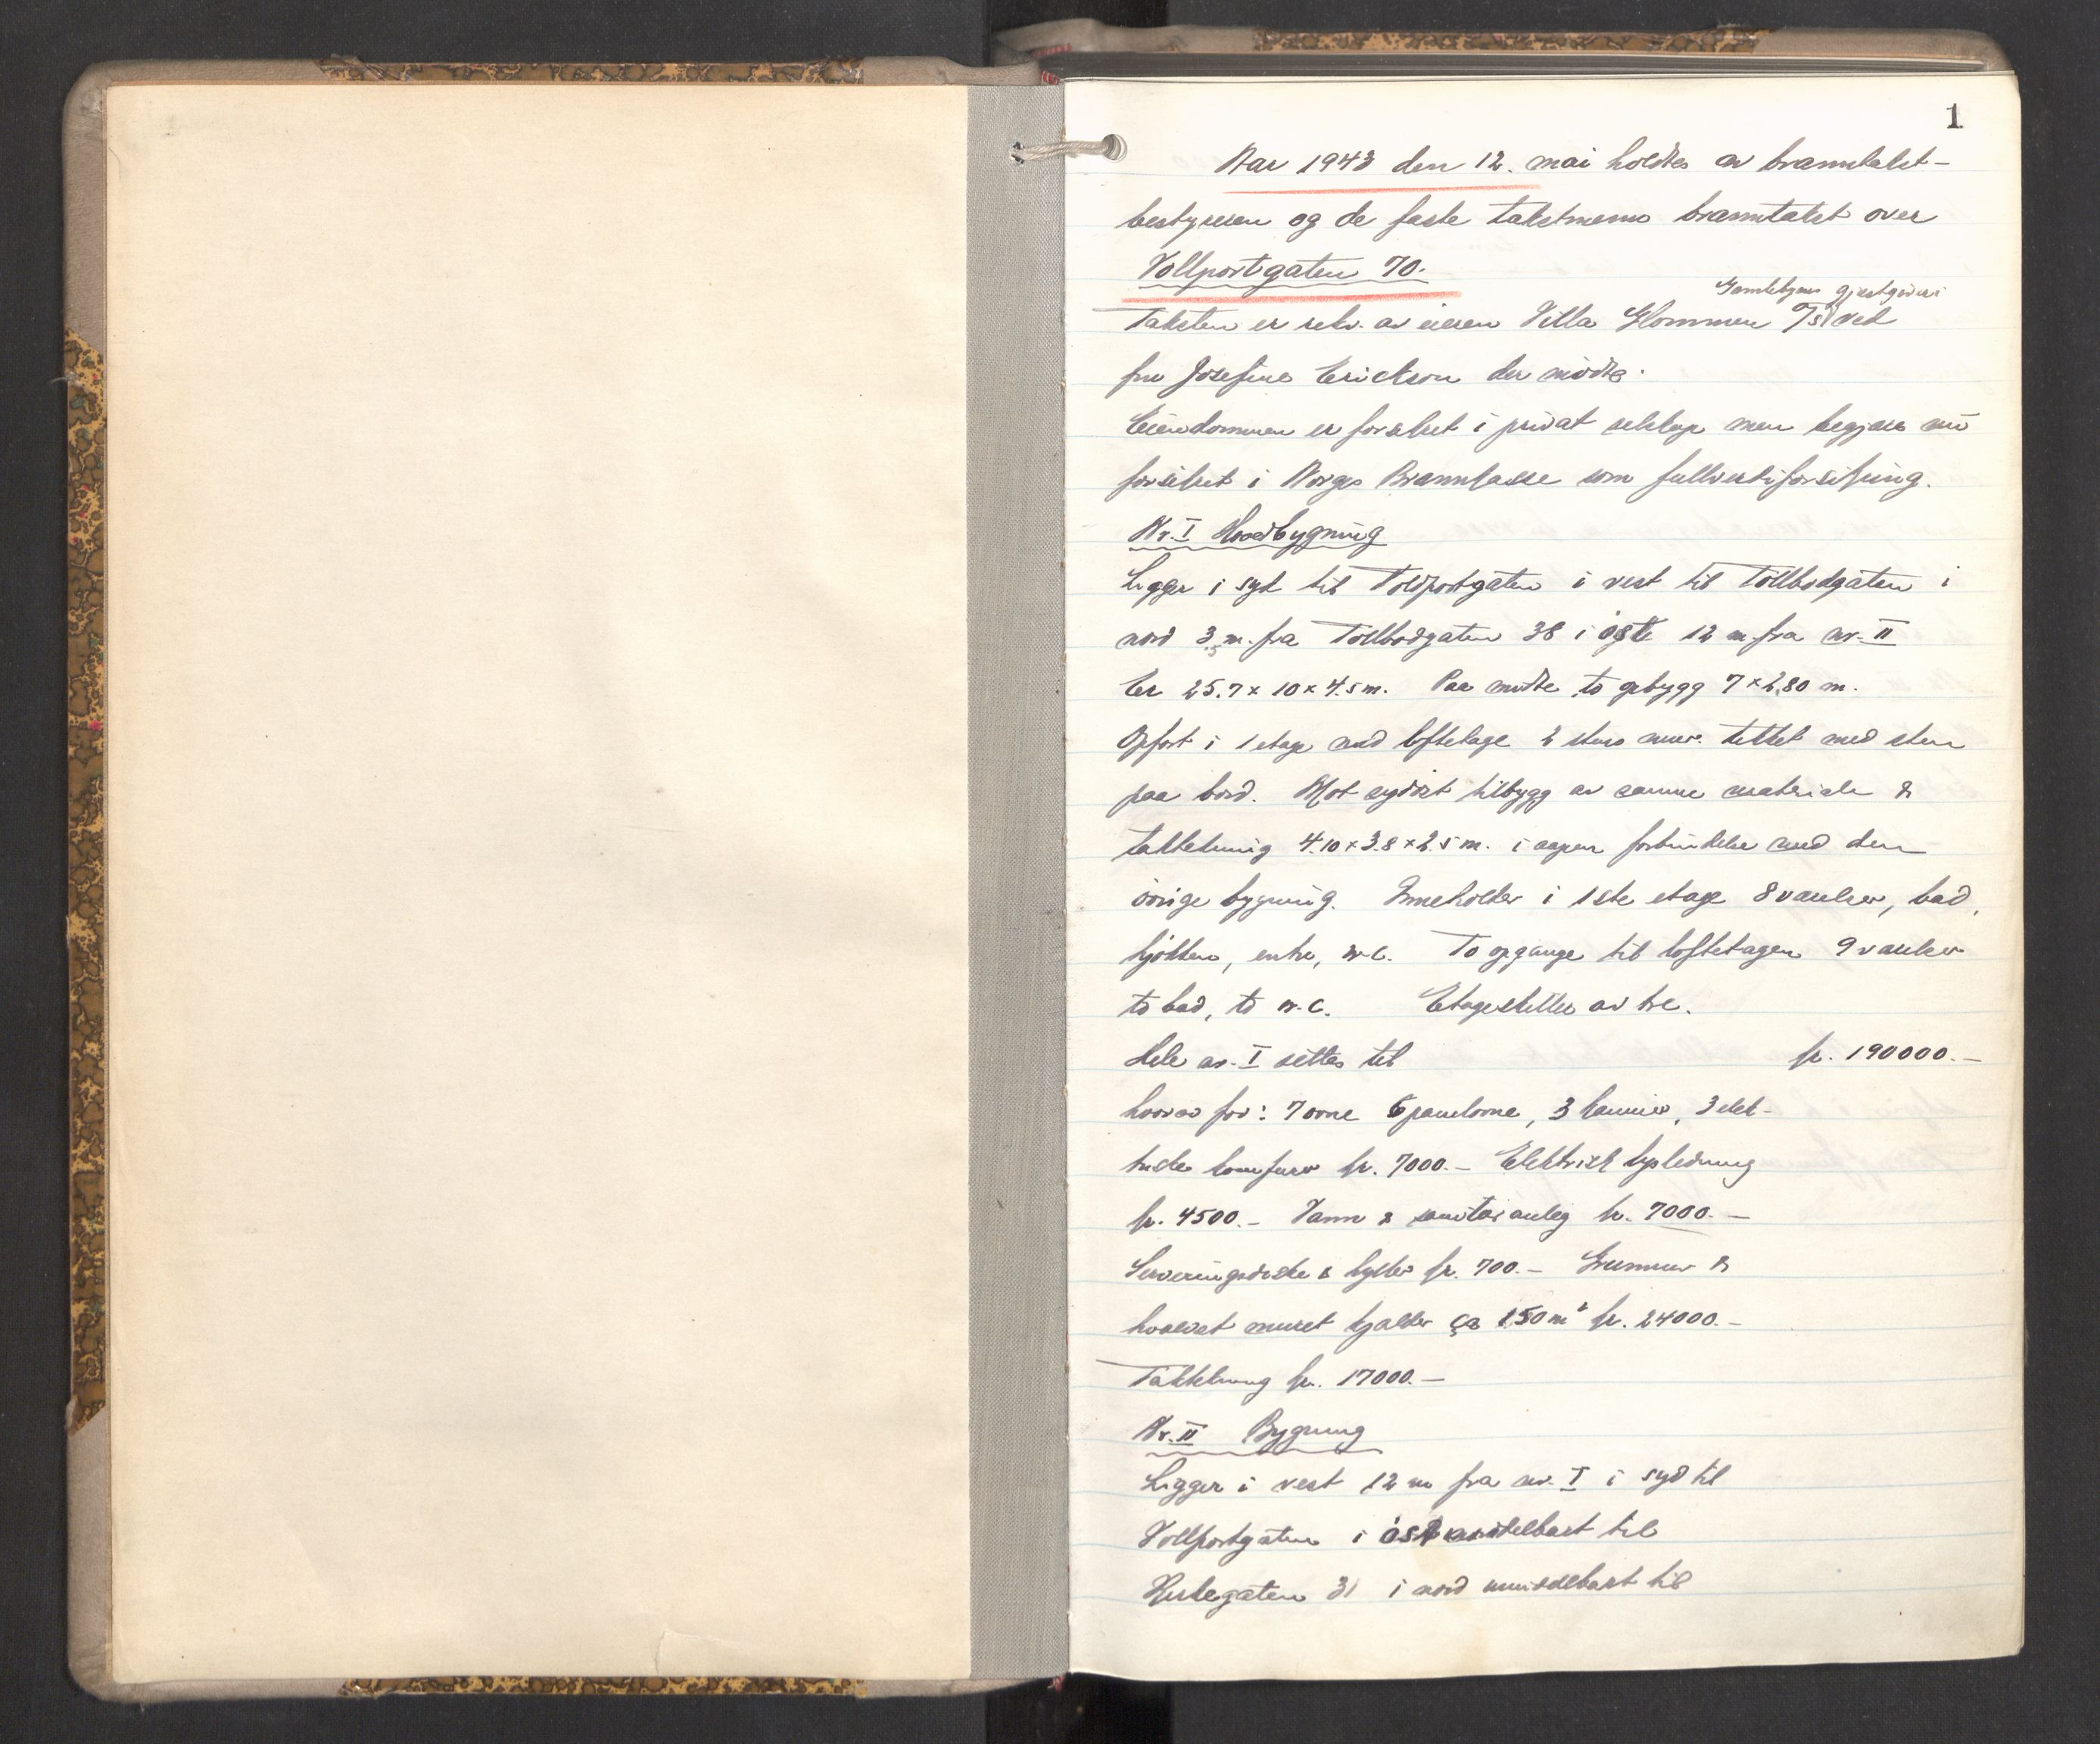 1
Aar 1943 den 12. mai holdtes av branntakst-
bestyreren og de faste takstmenn branntakst over
Vollportgaten 70.
Gamlebyens gjestgiveri
Taksten er rekv. av eieren Villa Glommen A/S ved
fru Josefine Erickson der mödte.
Eiendommen er forsikret i privat selskap men begjæres nu
forsikret i Norges Brannkasse som fullverdiforsikring.
Nr. I Hovedbygning
Ligger i syd til Voldportgaten i vest til Tollbodgaten i
nord 3,5 m. fra Tollbodgaten 38 i öste 12 m. fra nr. II
Er 25.7 x 10 x 4.5 m. Paa midte to opbygg 7 x 2,80 m.
Opfört i 1 etage med loftetage 2 stens mur. tekket med sten
paa bord. Mot sydöst tilbygg av samme materiale &
taktekning 4.10 x 3.8 x 2.5 m. i aapen forbindelse med den
övrige bygning. Inneholder i 1ste etage 8 værelser, bad,
kjökken, entre, w.c. To opgange til loftetagen 9 værelser
to bad, to w.c. Etageskiller av tre.
Hele nr. I settes til kr. 190000.-
hvorav for: 7 ovne 6 panelovne, 3 kaminer, 3 elek-
triske komfyrer kr. 7000.- Elektrisk lysledning
kr. 4500.- Vann & sanitæranlæg kr. 7000.-
Serveringsdiske & hyller kr. 700.- Grunmur &
hvælvet muret kjelder ca 150 m² kr. 24000.-
Taktekning kr. 17000.-
Nr. II Bygning
Ligger i vest 12 m fra nr. I i syd til
Vollportgaten i öst umiddelbart til
31 i nord umiddelbart til